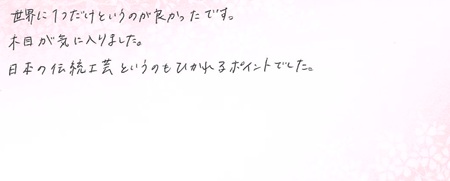 世界に1つだけというのが良かったです。
木目が気に入りました。
日本の伝統工芸というのもひかれるポイントでした。